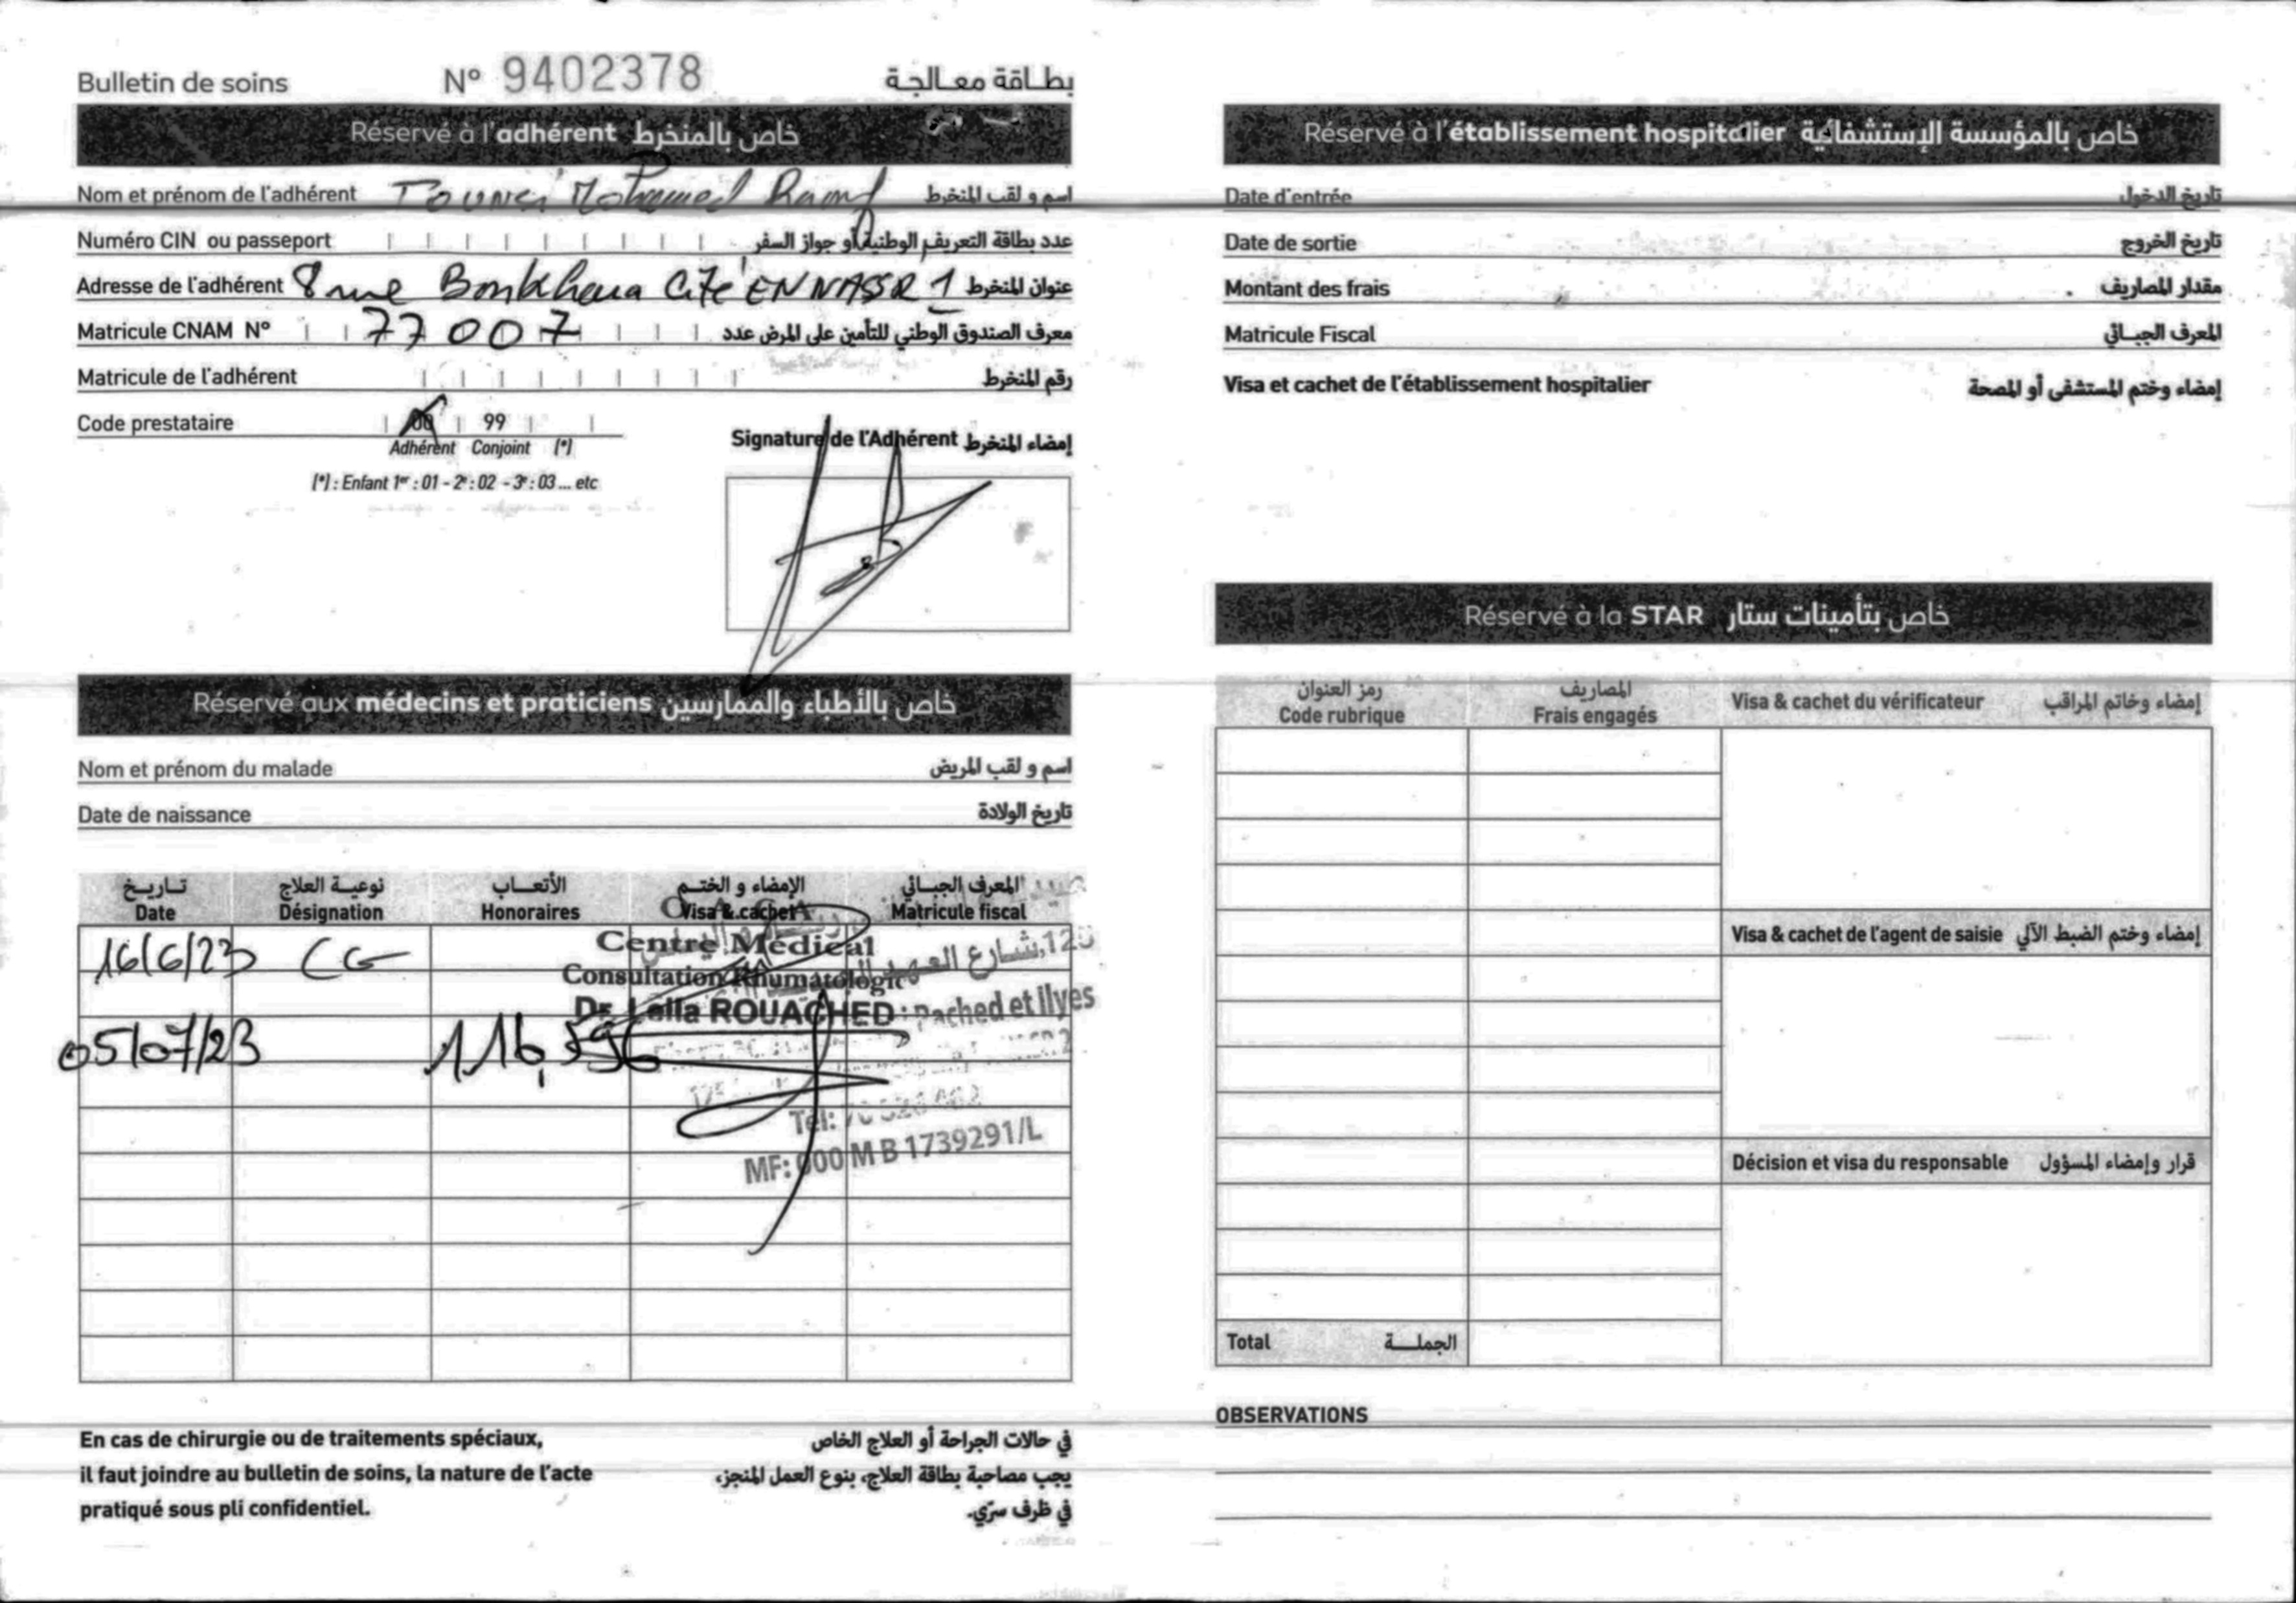 Bulletin de soins N° 9402378 بطاقة معالجة
Réservé à l'adhérent خاص بالمنخرط
Nom et prénom de l'adhérent Mohamed اسم و لقب المنخرط
Numéro CIN ou passeport عدد بطاقة التعريف الوطنية أو جواز السفر
Adresse de l'adhérent 8 rue Cité ENNASR 1 عنوان المنخرط
Matricule CNAM N° 77007 معرف الصندوق الوطني للتأمين على المرض عدد
Matricule de l'adhérent رقم المنخرط
Code prestataire 00 99
Adhérent Conjoint (*)
(*) : Enfant 1er : 01 - 2e : 02 - 3e : 03 ... etc
Signature de l'Adhérent إمضاء المنخرط
Réservé aux médecins et praticiens خاص بالأطباء والممارسين
Nom et prénom du malade اسم و لقب المريض
Date de naissance تاريخ الولادة
تاريخ نوعية العلاج الأتعاب الإمضاء و الختم المعرف الجبائي
Date Désignation Honoraires Visa & cachet Matricule fiscal
16/6/23 CG
Centre Médical
Consultation Rhumatologie
Dr. Leila ROUACHED
125, شارع
Rached et ilyes
05/07/23 116,596
Tél:
MF: 000 M B 1739291/L
En cas de chirurgie ou de traitements spéciaux,
il faut joindre au bulletin de soins, la nature de l'acte
pratiqué sous pli confidentiel.
في حالات الجراحة أو العلاج الخاص
يجب مصاحبة بطاقة العلاج، بنوع العمل المنجز،
في ظرف سرّي.
Réservé à l'établissement hospitalier خاص بالمؤسسة الإستشفائية
Date d'entrée تاريخ الدخول
Date de sortie تاريخ الخروج
Montant des frais مقدار المصاريف
Matricule Fiscal المعرف الجبائي
Visa et cachet de l'établissement hospitalier إمضاء وختم المستشفى أو المصحة
Réservé à la STAR خاص بتأمينات ستار
رمز العنوان المصاريف
Code rubrique Frais engagés Visa & cachet du vérificateur إمضاء وخاتم المراقب
Visa & cachet de l'agent de saisie إمضاء وختم الضبط الآلي
Décision et visa du responsable قرار وإمضاء المسؤول
Total الجملة
OBSERVATIONS